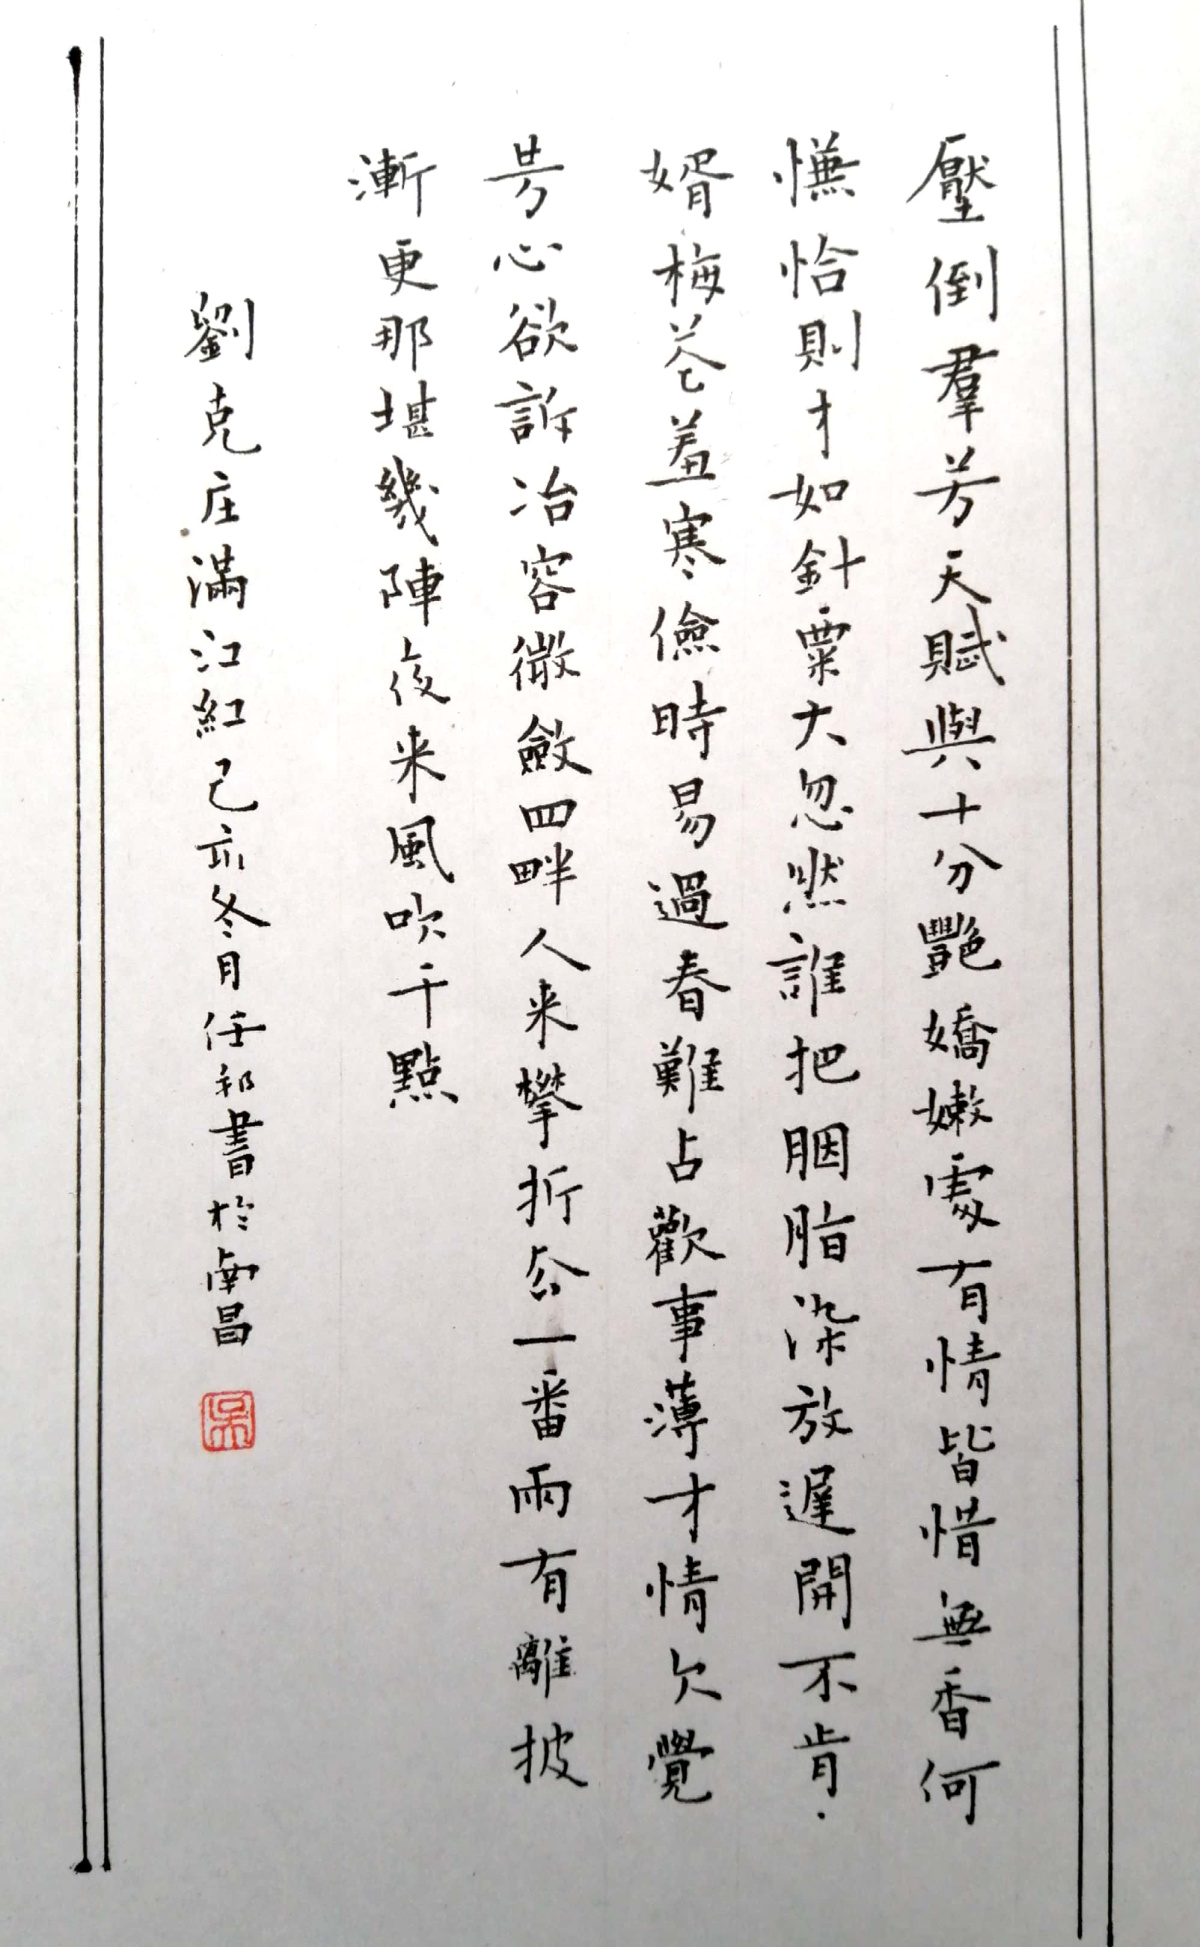 壓倒羣芳天賦與十分艷嬌嫩處有情皆惜無香何
憮恰則才如針粟大忽然誰把胭脂染放遲開不肯
婿梅花羞寒儉時易過春難占歡事薄才情欠覺
芳心欲訴冶容微斂四畔人来攀折去一番雨有離披
漸更那堪幾陣夜来風吹千點
劉克庄滿江紅己亥冬月任和書於南昌